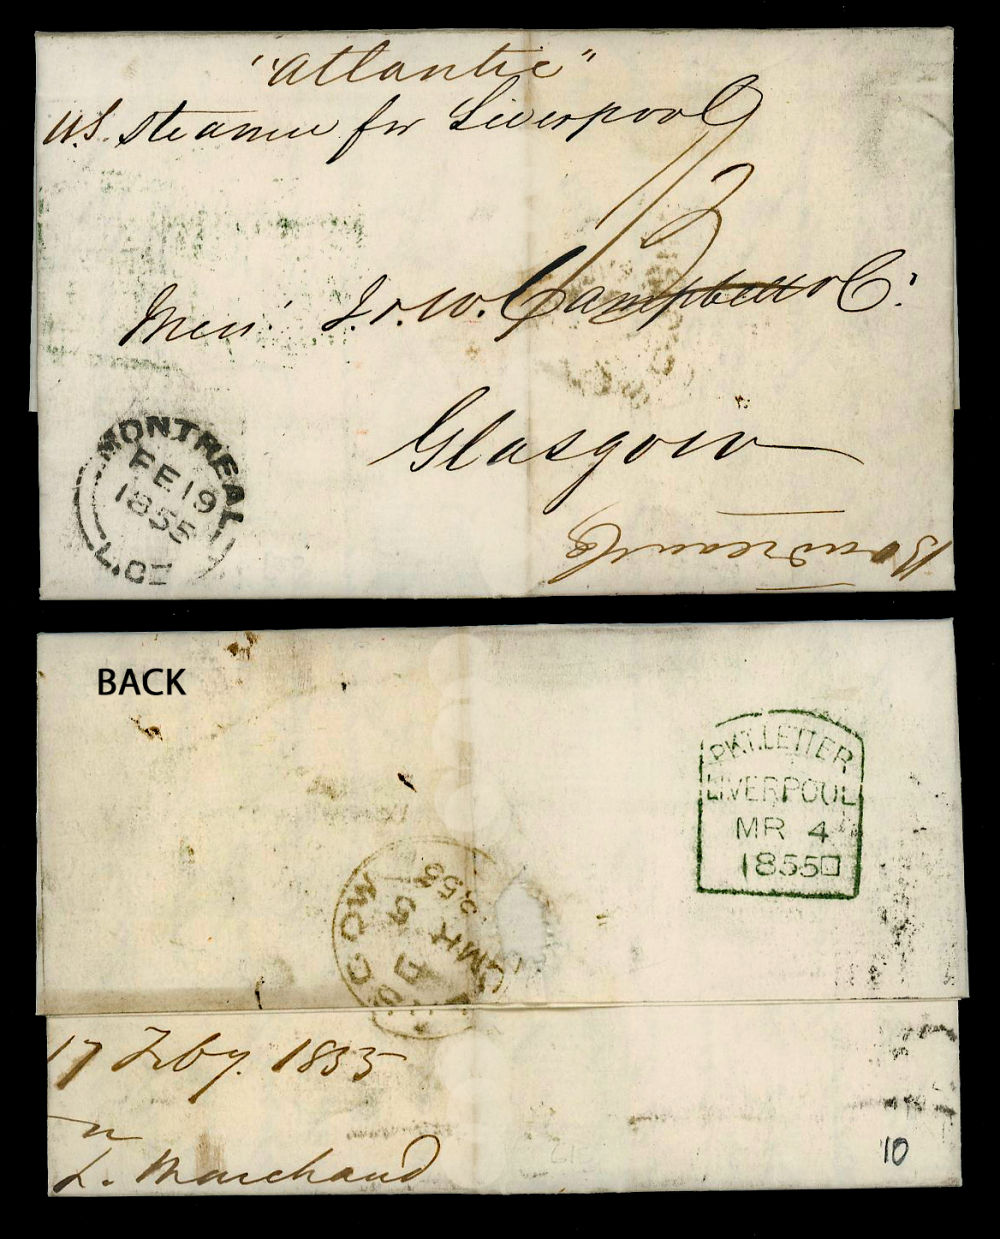 "Atlantic"
U.S. Steamer for Liverpool
1/2
Mess.rs J. & W. Campbell & Co.
Glasgow
MONTREAL
FE 19
1855
L.C
BACK
PKT. LETTER
LIVERPOOL
MR 4
1855
GLASGOW
D
5 MH
1855
17 Feby. 1855
L. Marchand
10